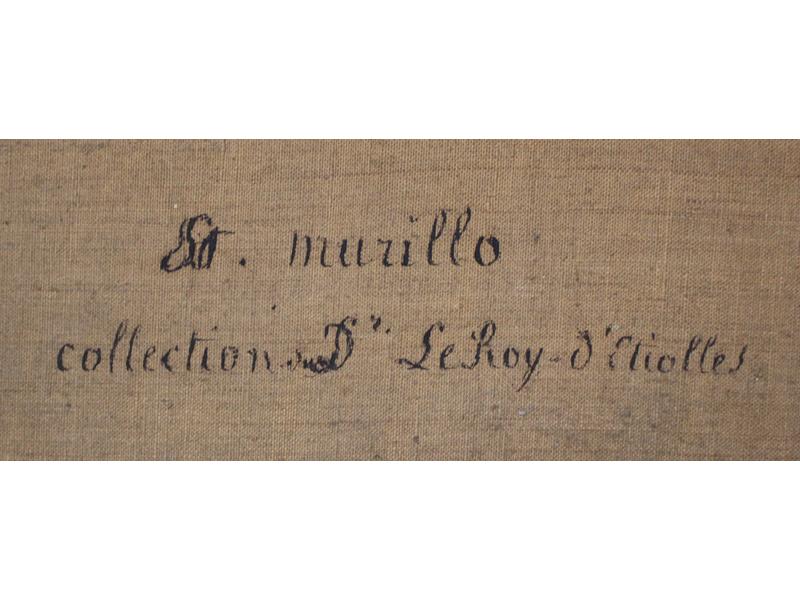 murillo
collection Dr. LeRoy-d'Etiolles